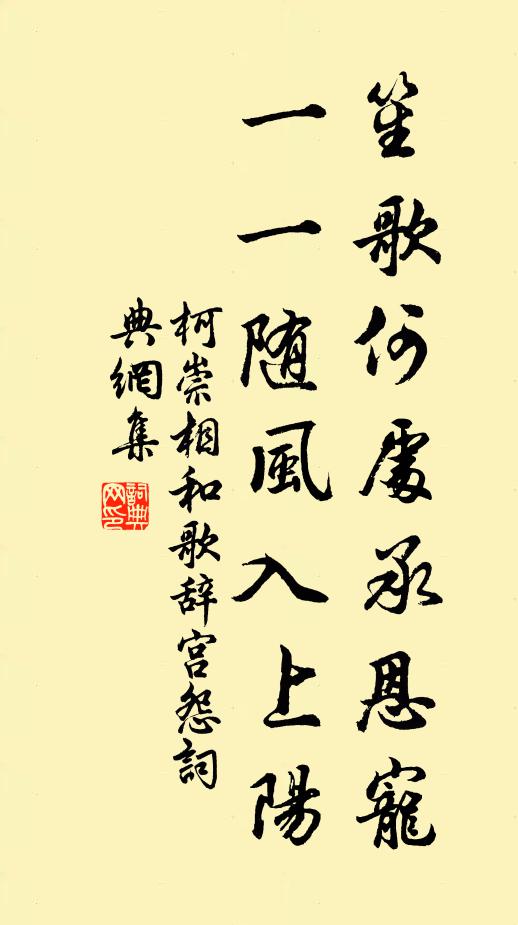 笙歌何處承恩寵
一一随風入上陽
柯崇相和歌辞宫怨詞
典網集
詞典网印